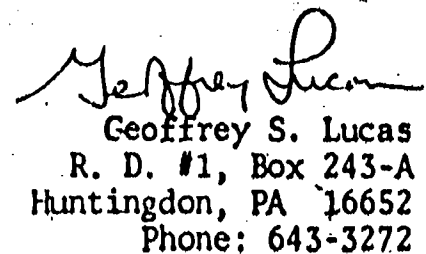 Geoffrey Lucas
Geoffrey S. Lucas
R. D. #1, Box 243-A
Huntingdon, PA 16652
Phone: 643-3272